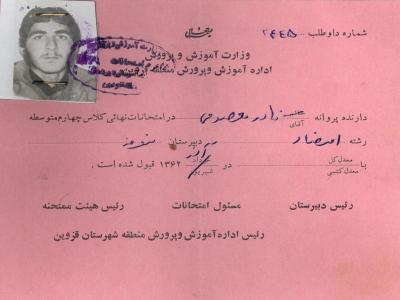 شماره داوطلب ۲۴۴۵
وزارت آموزش و پرورش
اداره آموزش وپرورش منطقه قزوین
دارنده پروانه خانم آقای نادر در امتحانات نهائی کلاس چهارم متوسطه
رشته دبیرستان
با معدل کل معدل کتبی در خرداد شهریور ۱۳۶۲ قبول شده است .
رئیس دبیرستان مسئول امتحانات رئیس هیئت ممتحنه
رئیس اداره آموزش وپرورش منطقه شهرستان قزوین